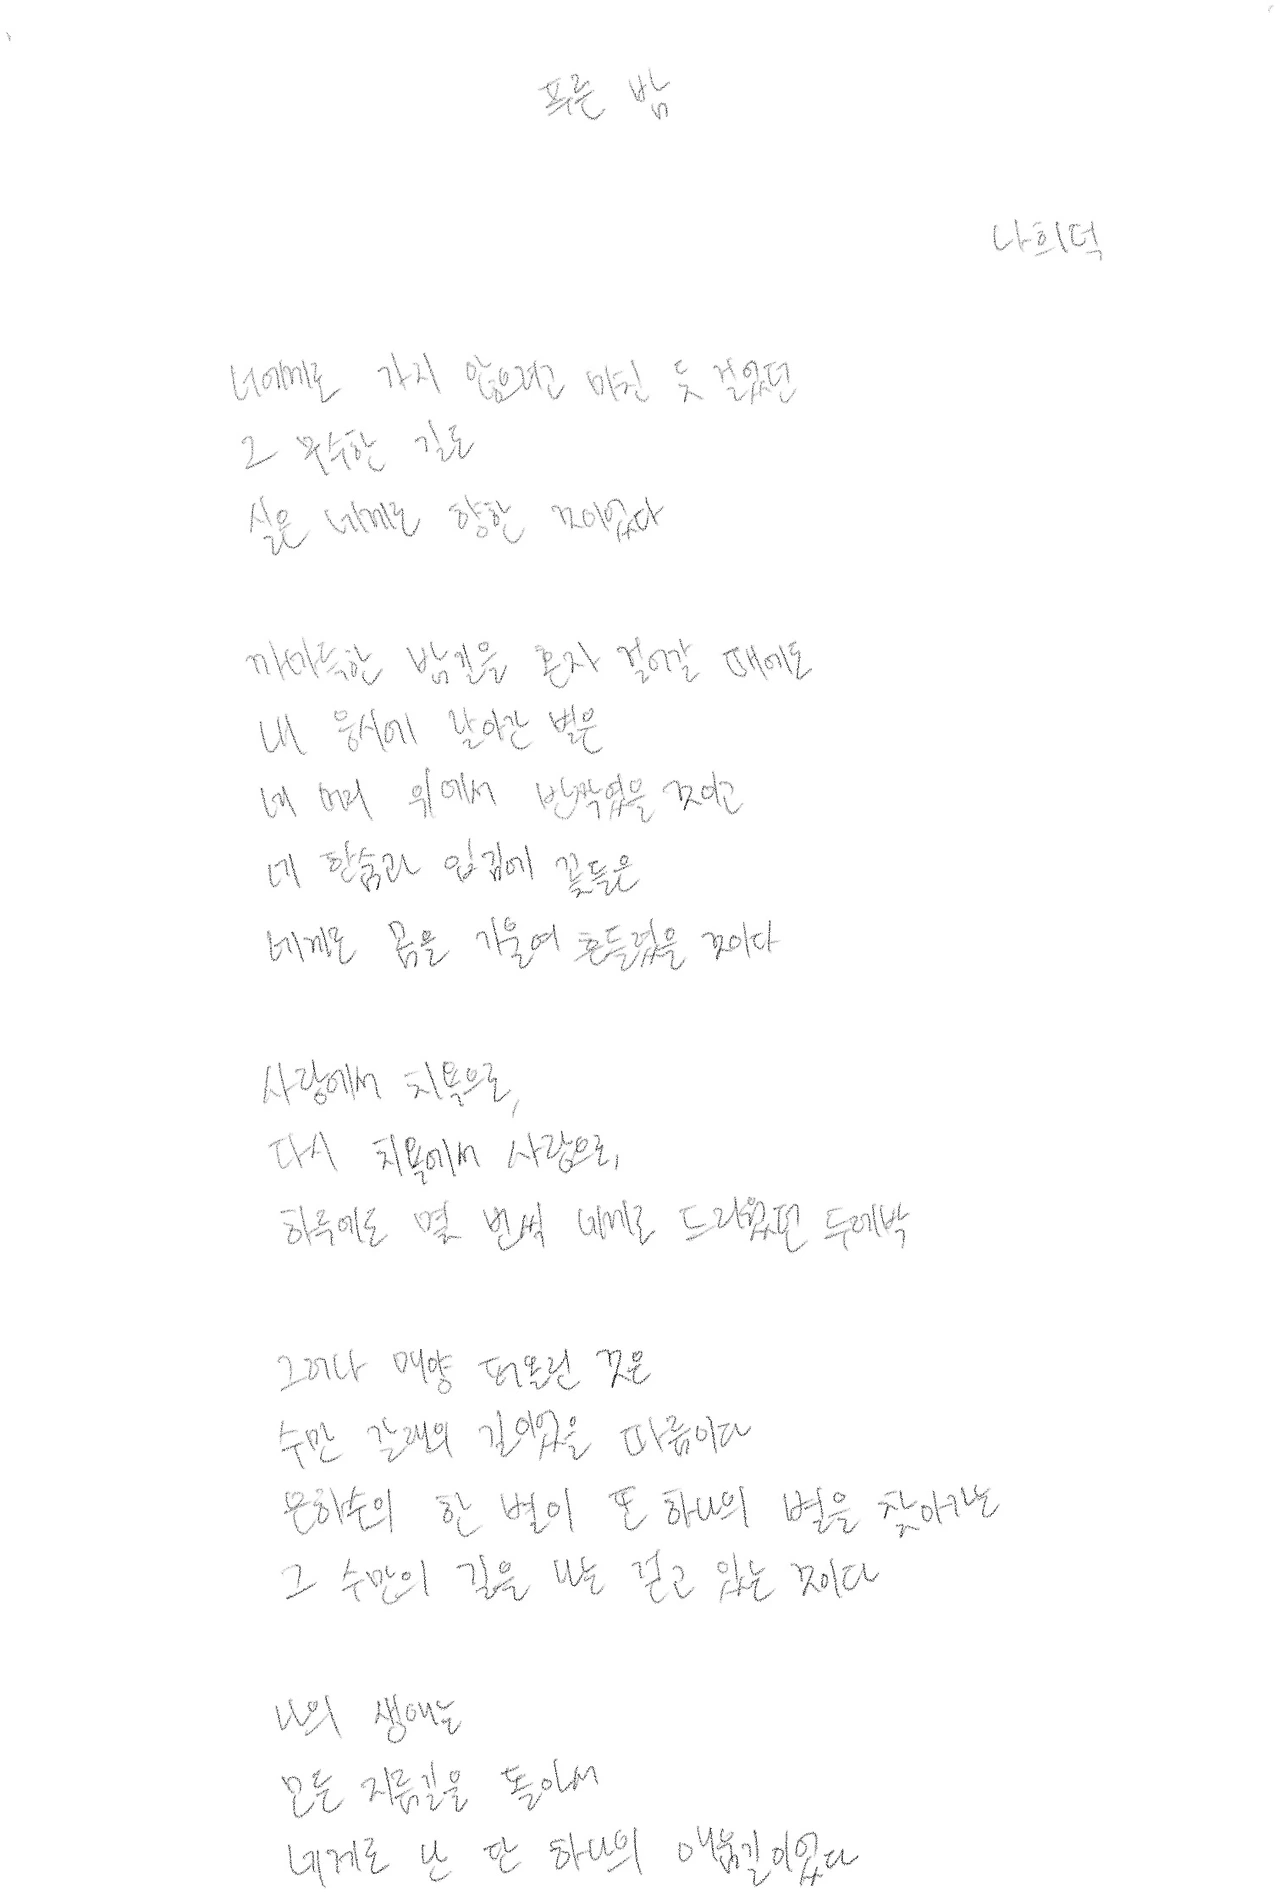 푸른 밤
나희덕
너에게로 가지 않으려고 미친 듯 걸었던
그 무수한 길도
실은 네게로 향한 것이었다
까마득한 밤길을 혼자 걸어갈 때에도
내 응시에 날아간 별은
네 머리 위에서 반짝였을 것이고
네 한숨과 입김에 꽃들은
네게로 몸을 기울여 흔들렸을 것이다
사랑에서 치욕으로,
다시 치욕에서 사랑으로,
하루에도 몇 번씩 네게로 드리웠던 두레박
그러나 매양 퍼올린 것은
수만 갈래의 길이었을 따름이다
은하수의 한 별이 또 하나의 별을 찾아가는
그 수만의 길을 나는 걷고 있는 것이다
나의 생애는
모든 지름길을 돌아서
네게로 난 단 하나의 에움길이었다